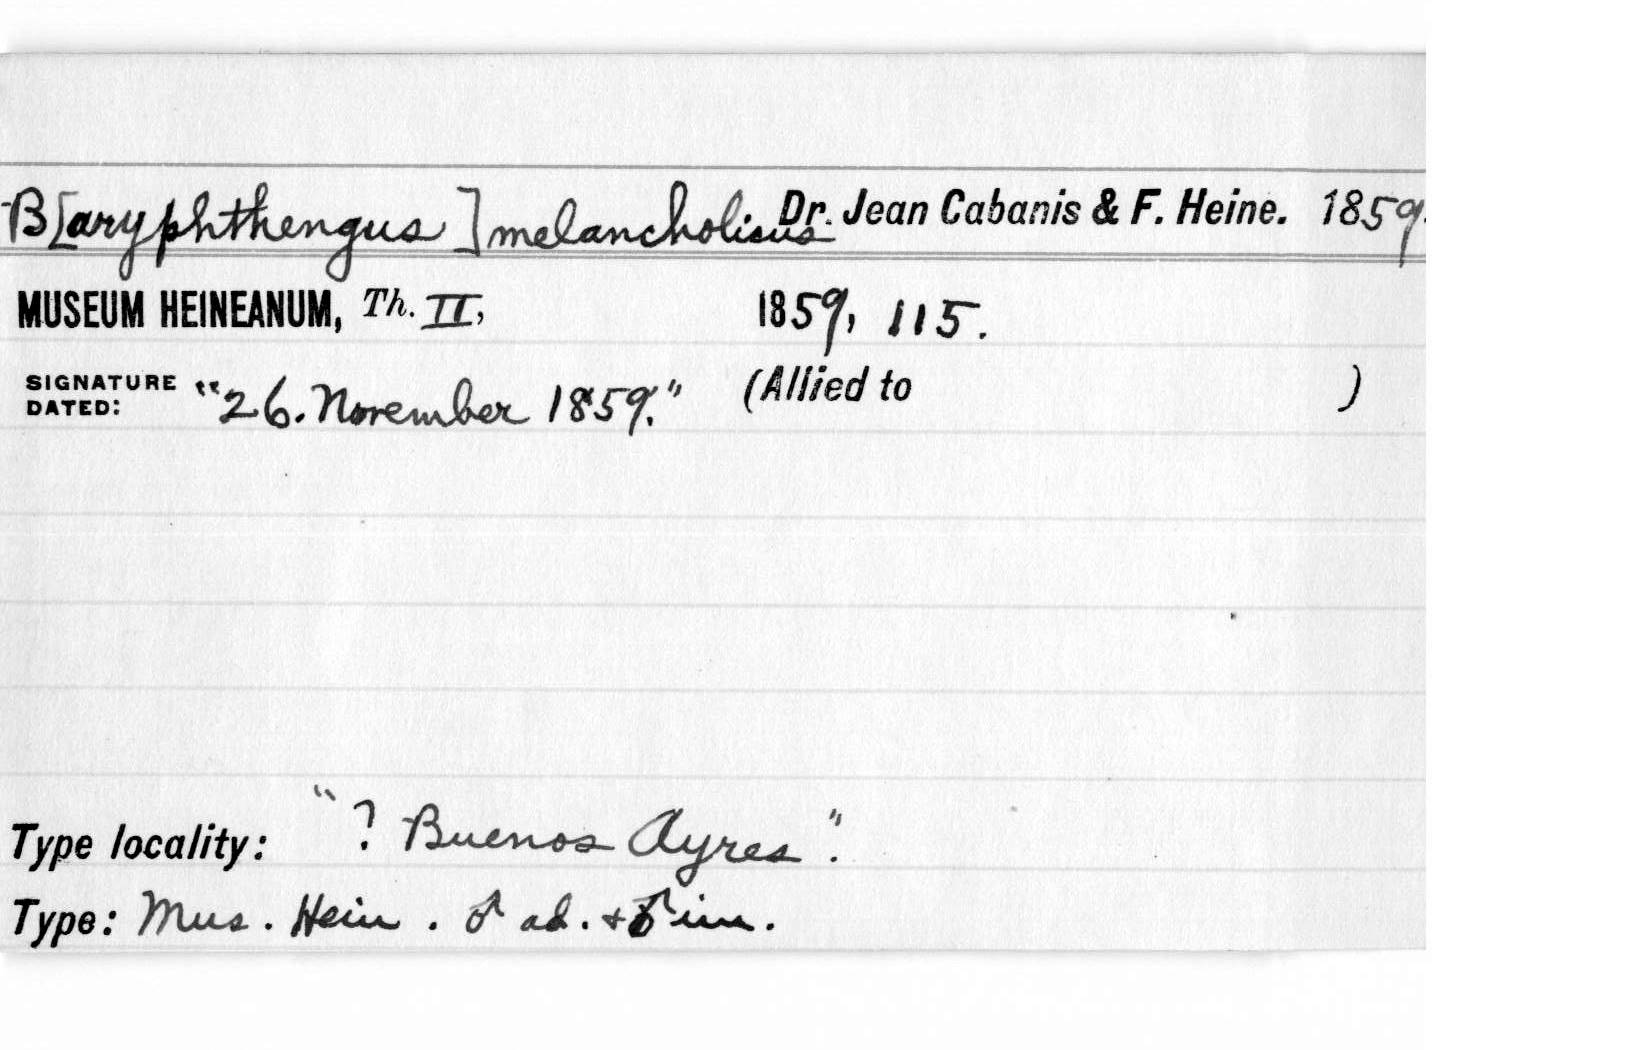 B[aryphthengus] melancholicus Dr. Jean Cabanis & F. Heine. 1859.
MUSEUM HEINEANUM, Th. II, 1859, 115.
SIGNATURE DATED: "26. November 1859." (Allied to )
Type locality: "? Buenos Ayres".
Type: Mus. Hein. ♂ ad. + ♂ im.